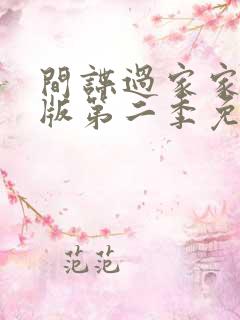 間諜過家家
版第二季免
范范